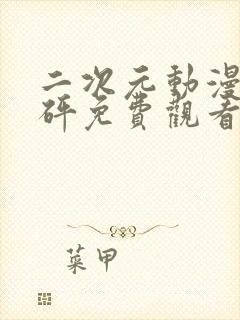 二次元動漫
砰免費觀看
菜甲